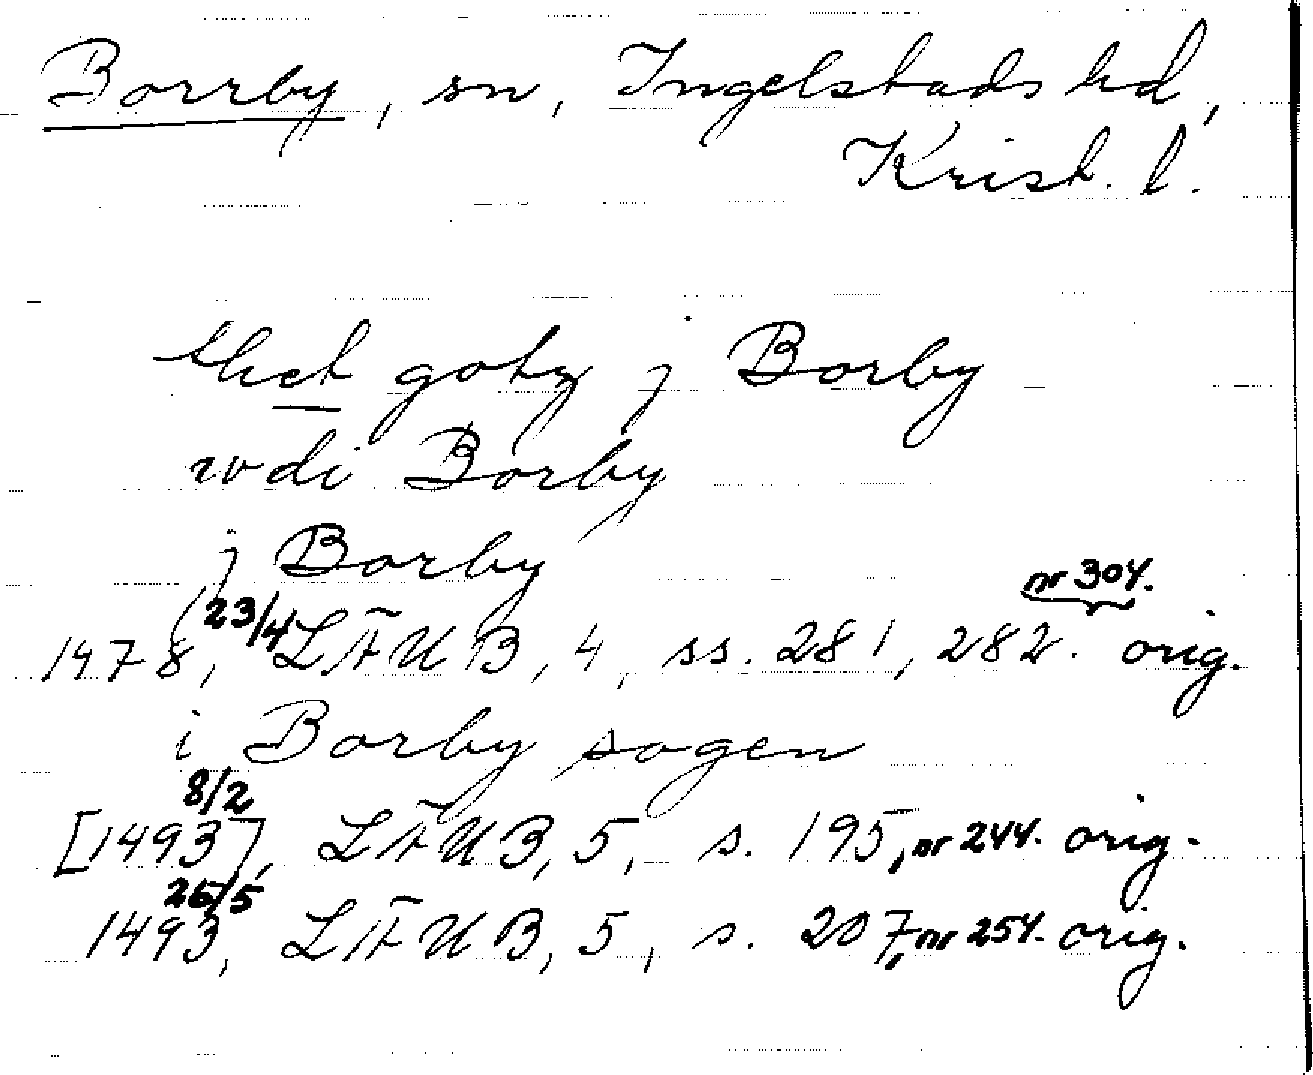 Borrby, sn, Ingelstads hd,
Krist. l.
thet gotz j Borby
wdi Borby
j Borby
nr 304.
1478, 23/4 LÄUB, 4, ss. 281, 282. orig.
i Borby sogen
8/2
[1493], LÄUB, 5, s. 195, nr 244. orig.
26/5
1493, LÄUB, 5, s. 207, nr 254. orig.